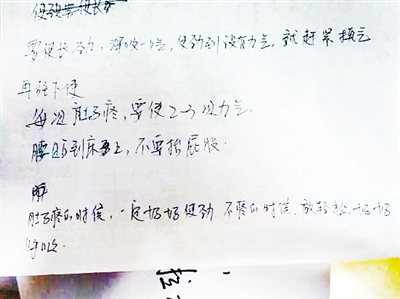 使劲要使长劲
要使长劲，深吸一口气，使劲到没有力气，就赶紧换气
再往下使
每次肚子疼，要使2-3次力气
腰贴到床上，不要抬屁股.
肚子疼的时候，一定好好使劲 不疼的时候，放轻松，好好
呼吸.